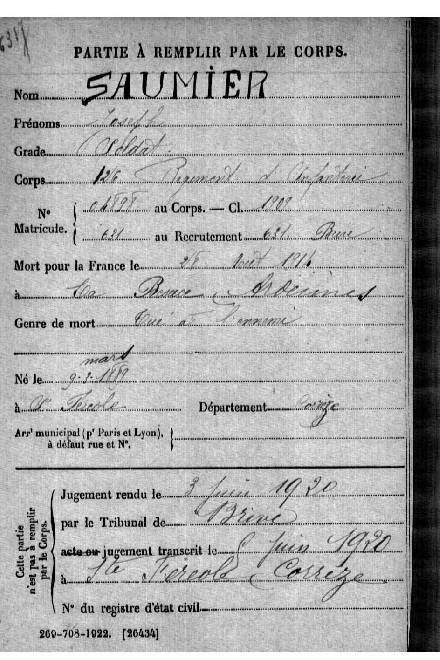 PARTIE À REMPLIR PAR LE CORPS.
Nom SAUMIER
Prénoms Joseph
Grade Soldat
Corps 126 Régiment d'Infanterie
N° Matricule. 04898 au Corps. — Cl. 1909
621 au Recrutement 621 Brive
Mort pour la France le 28 Août 1914
à La Ardennes
Genre de mort Tué à l'ennemi
mars
Né le 9-3-1889
à St Féréole Département Corrèze
Arrt municipal (pr Paris et Lyon),
à défaut rue et N°.
Cette partie
n'est pas à remplir
par le Corps.
Jugement rendu le 3 juin 1920
par le Tribunal de Brive
acte ou jugement transcrit le juin 1920
à Ste Féréole Corrèze
N° du registre d'état civil
269-708-1922. [26434]